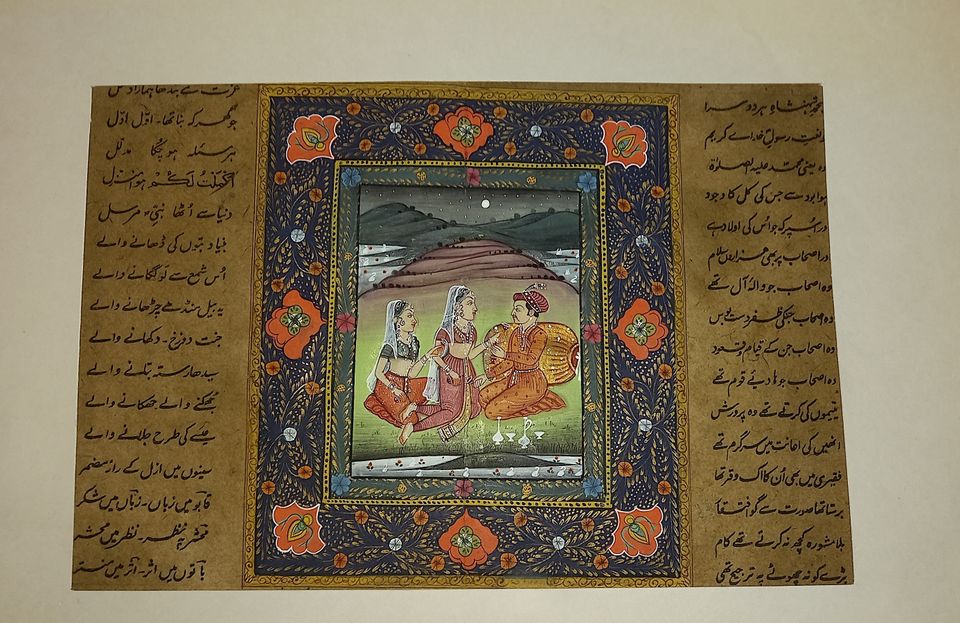 شہنشاہِ ہر دوسرا
نعت رسولِ خدا اے کریم
وہ یعنی محمد علیہ الصلوٰۃ
ہوا بود سے جس کی کل کا وجود
اور اس پر کہ جو اُس کی اولاد ہے
اور اصحاب پر بھی ہزاراں سلام
وہ اصحاب جو والۂ آل تھے
وہ اصحاب جنکی ظفر
وہ اصحاب جن کے قیام و قعود
وہ اصحاب جو ہادیٔے قوم تھے
یتیموں کی کرتے تھے وہ پرورش
انھیں کی اعانت میں سرگرم تھے
فقیری میں بھی اُن کا اک وقر تھا
برستا تھا صورت سے
بلا مشورہ کچھ نہ کرتے تھے کام
بڑے کو نہ چھوٹے پہ ترجیح تھی
عزت سے
جو گھر کہ بنا تھا۔ اوّل اوّل
ہر مسئلہ ہو چکا مدلل
اکملت لکم ہوا منزل
دنیا سے اُٹھا نبیِّ مرسل
بنیاد بتوں کی ڈھانے والے
اُس شمع سے لو لگانے والے
یہ بیل منڈھے چڑھانے والے
جنت دوزخ۔ دکھانے والے
سیدھا رستہ بتلانے والے
جھکنے والے جھکانے والے
کی طرح جلانے والے
سینوں میں ازل کے راز مضمر
قابو میں زباں۔ زباں میں شکر
نظر۔ نظر میں
باتوں میں اثر۔ اثر میں